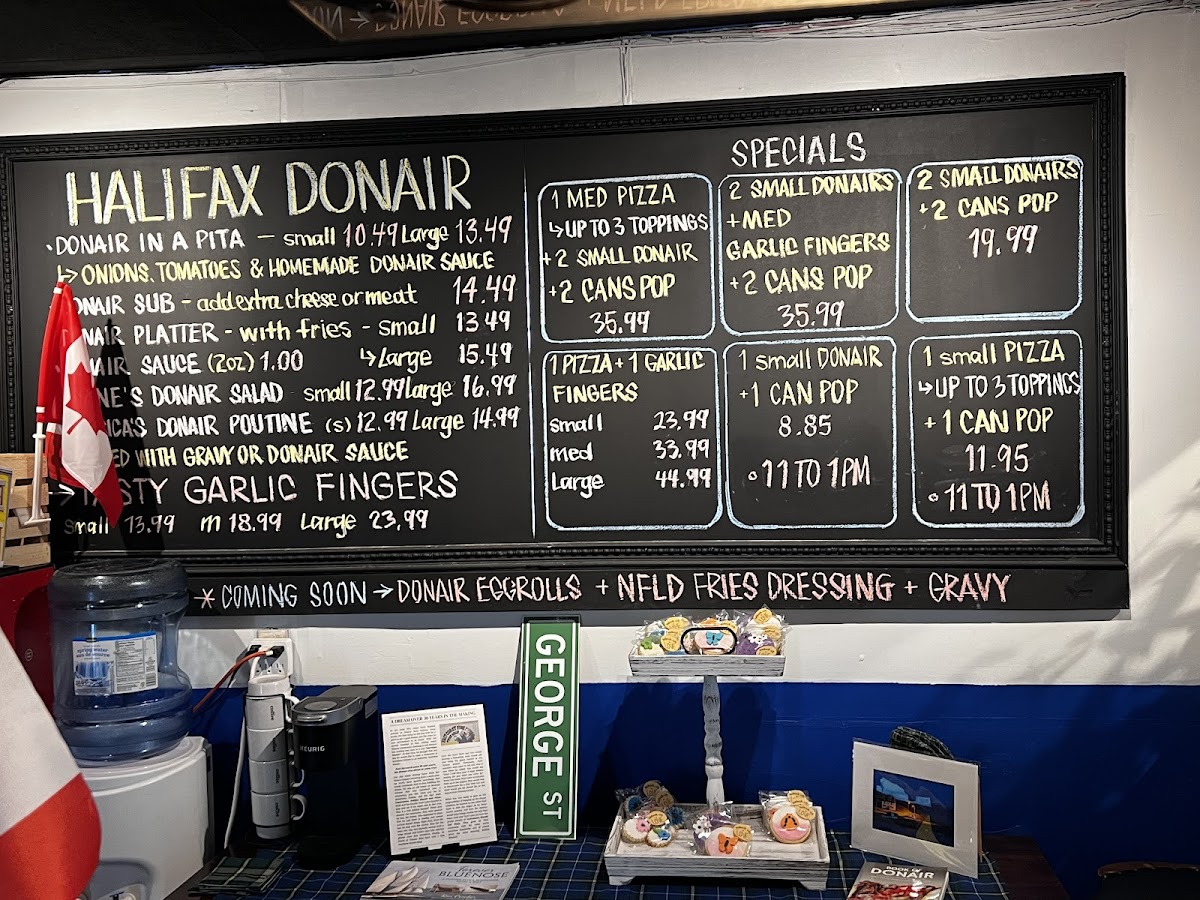 HALIFAX DONAIR
DONAIR IN A PITA - small 10.49 Large 13.49
↳ ONIONS, TOMATOES & HOMEMADE DONAIR SAUCE
ONAIR SUB - add extra cheese or meat 14.49
NAIR PLATTER - with fries - small 13.49
AIR SAUCE (2oz) 1.00 ↳ Large 15.49
NE'S DONAIR SALAD small 12.99 Large 16.99
ICA'S DONAIR POUTINE (s) 12.99 Large 14.99
ED WITH GRAVY OR DONAIR SAUCE
→ TASTY GARLIC FINGERS
small 13.99 m 18.99 Large 23.99
SPECIALS
1 MED PIZZA
↳ UP TO 3 TOPPINGS
+ 2 SMALL DONAIR
+ 2 CANS POP
35.99
2 SMALL DONAIRS
+ MED
GARLIC FINGERS
+ 2 CANS POP
35.99
2 SMALL DONAIRS
+ 2 CANS POP
19.99
1 PIZZA + 1 GARLIC
FINGERS
small 23.99
med 33.99
Large 44.99
1 small DONAIR
+ 1 CAN POP
8.85
11 TO 1PM
1 small PIZZA
↳ UP TO 3 TOPPINGS
+ 1 CAN POP
11.95
11 TO 1PM
* COMING SOON → DONAIR EGGROLLS + NFLD FRIES DRESSING + GRAVY
GEORGE ST
KEURIG
A DREAM OVER 30 YEARS IN THE MAKING
BLUENOSE
BOOK OF
DONAIR